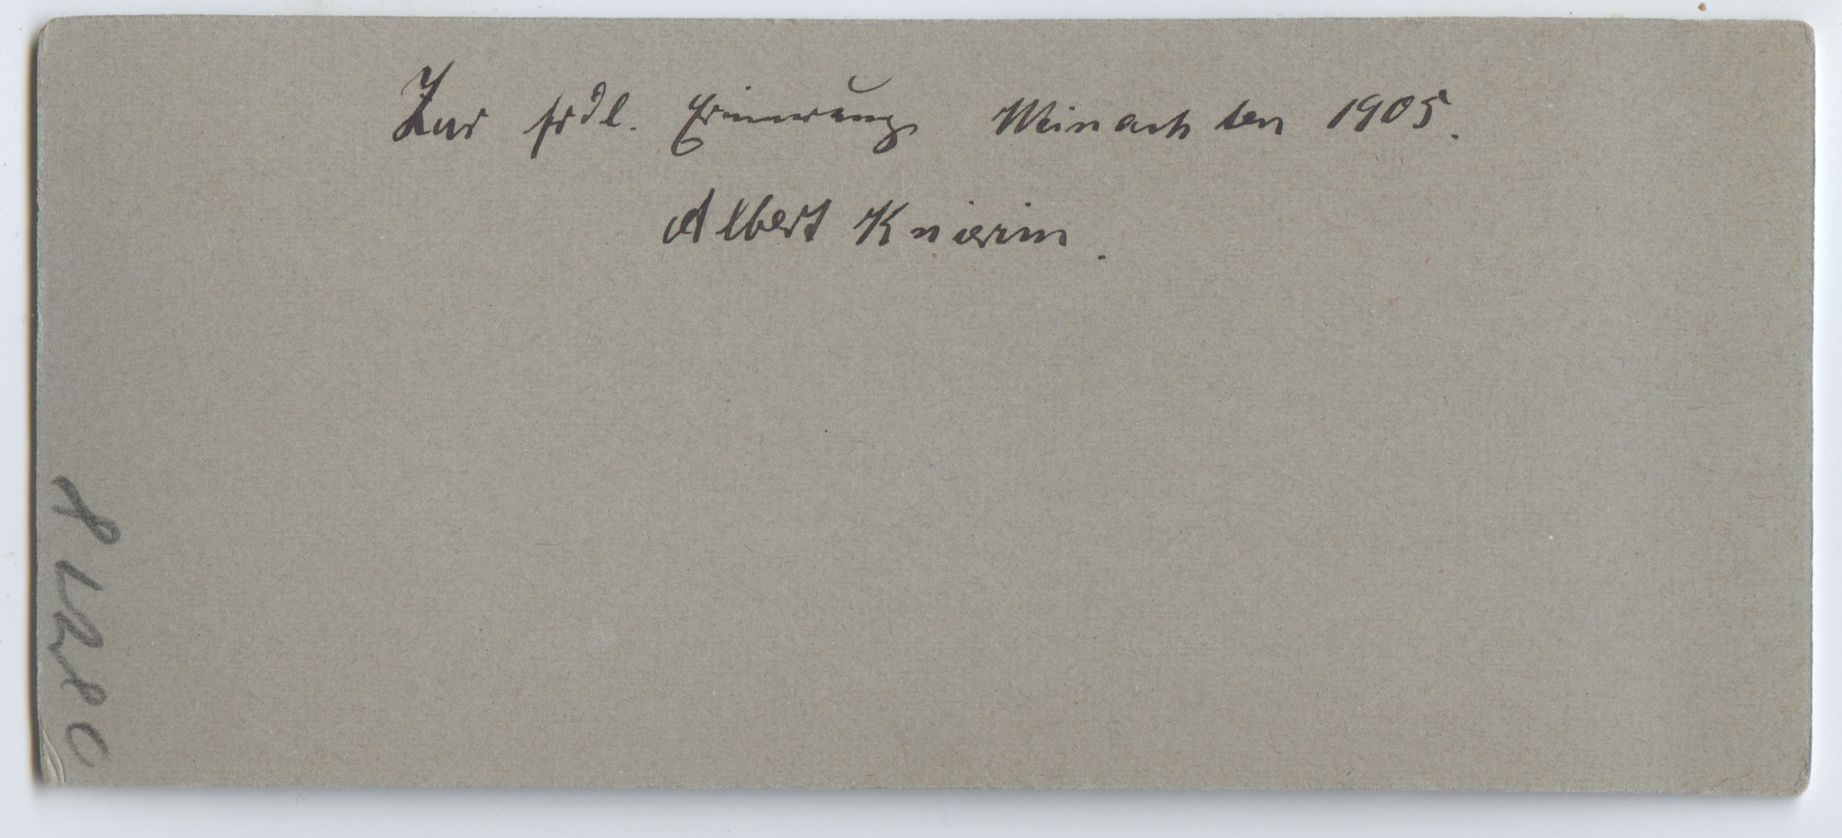 Zur frdl. Erinnerung Weinachten 1905.
Albert Knierim.